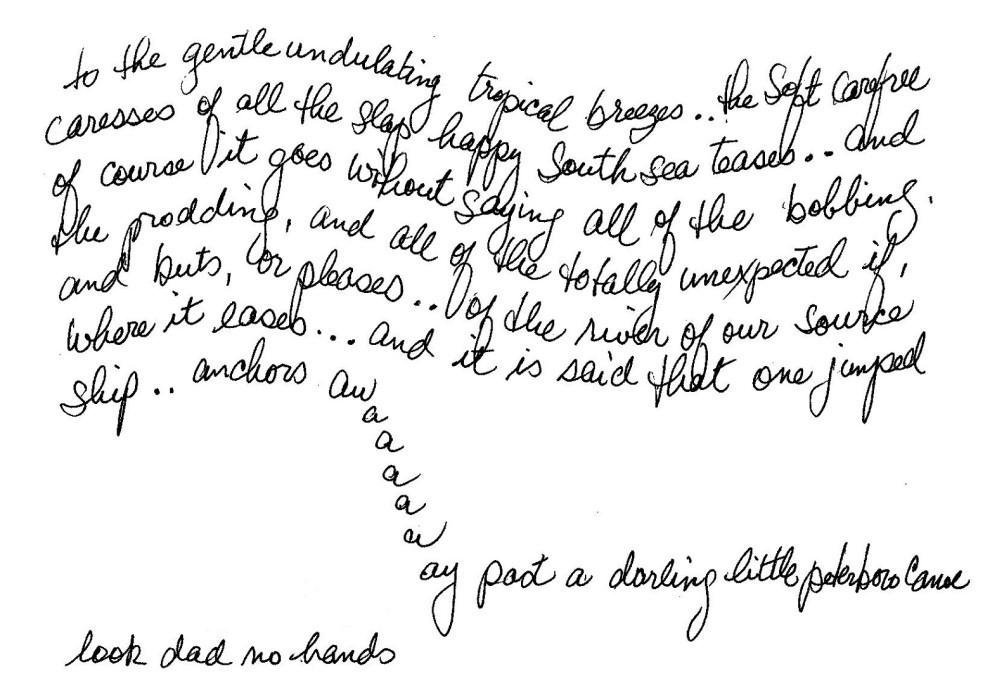 to the gentle undulating tropical breezes.. the soft carefree
caresses of all the slap happy South sea teases.. and
of course it goes without saying all of the bobbing,
the prodding, and all of the totally unexpected if,
and buts, or pleases... of the river of our source
where it eases... and it is said that one jumped
ship.. anchors aw
a
a
a
a
a
ay past a darling little peterboro canoe
look dad no hands